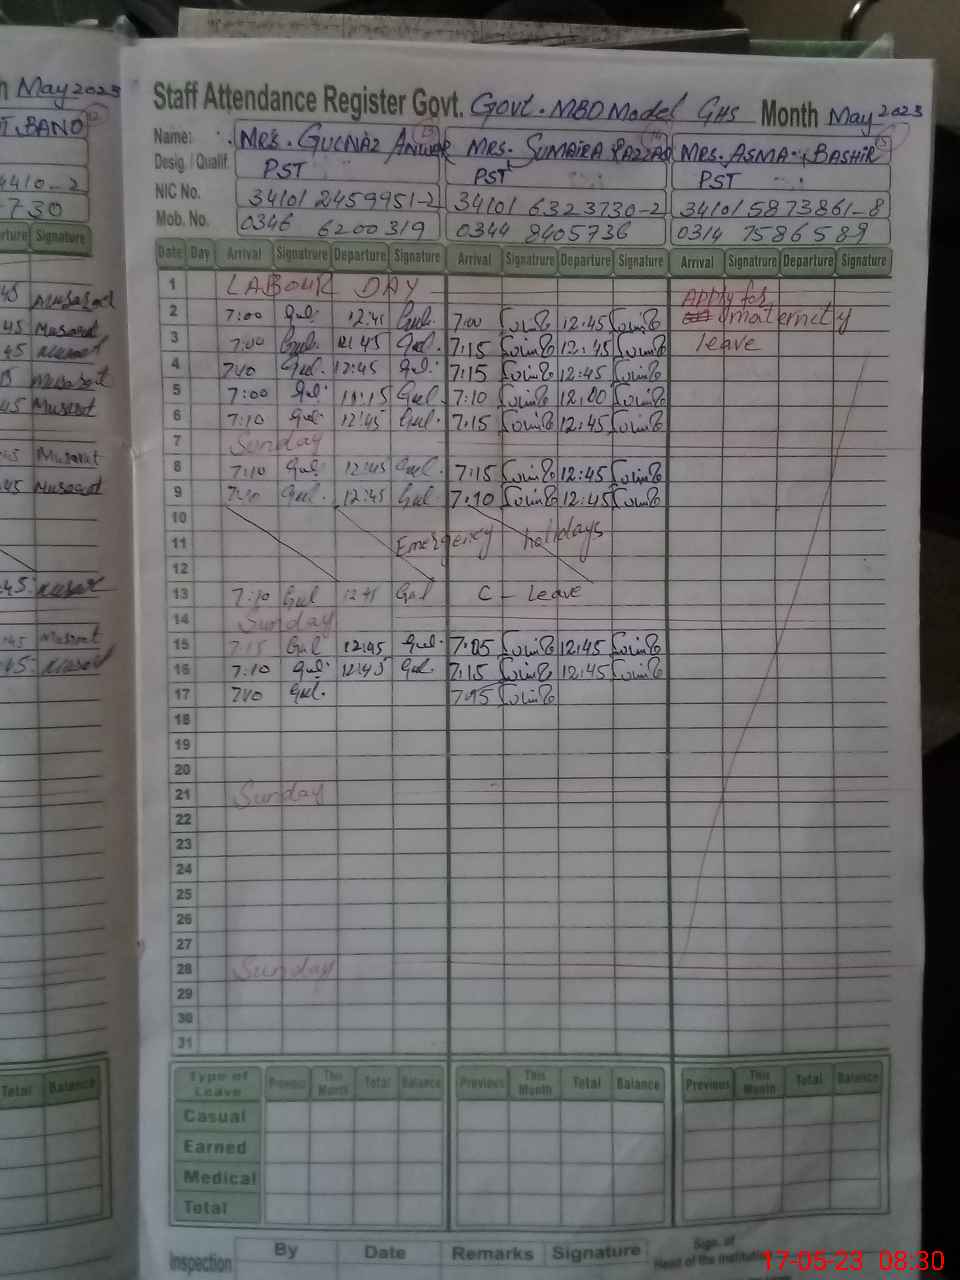 May 2023
Staff Attendance Register Govt. Govt. MBD Model GHS Month May 2023
BANO
Name: Mrs. GULNAZ ANWAR Mrs. SUMAIRA RAZZAQ Mrs. ASMA BASHIR
Desig. / Qualif. PST PST PST
4410-2
NIC No. 34101 2459951-2 34101 6323730-2 34101 5873861-8
-730
Mob. No. 0346 6200319 0344 8405736 0314 7586589
Signature
Date Day Arrival Signatrure Departure Signature Arrival Signatrure Departure Signature Arrival Signatrure Departure Signature
1 LABOUR DAY
Apply for
2 7:00 Gul. 12:45 Gul. 7:00 12:45 maternity
3 7:00 Gul. 12:45 Gul. 7:15 12:45 leave
4 7:10 Gul. 12:45 Gul. 7:15 12:45
5 7:00 Gul. 11:15 Gul. 7:10 12:00
6 7:10 Gul. 12:45 Gul. 7:15 12:45
7 Sunday
8 7:10 Gul. 12:45 Gul. 7:15 12:45
9 7:10 Gul. 12:45 Gul 7:10 12:45
10
11 Emergency holidays
12
13 7:10 Gul 12:45 Gul C - Leave
14 Sunday
15 7:15 Gul 12:45 Gul. 7:05 12:45
16 7:10 Gul. 12:45 Gul. 7:15 12:45
17 7:10 Gul. 7:15
18
19
20
21 Sunday
22
23
24
25
26
27
28 Sunday
29
30
31
Total Balance
Type of Leave Previous This Month Total Balance Previous This Month Total Balance Previous This Month Total Balance
Casual
Earned
Medical
Total
Inspection By Date Remarks Signature Sign. of
Head of the Institution
17-05-23 08:30